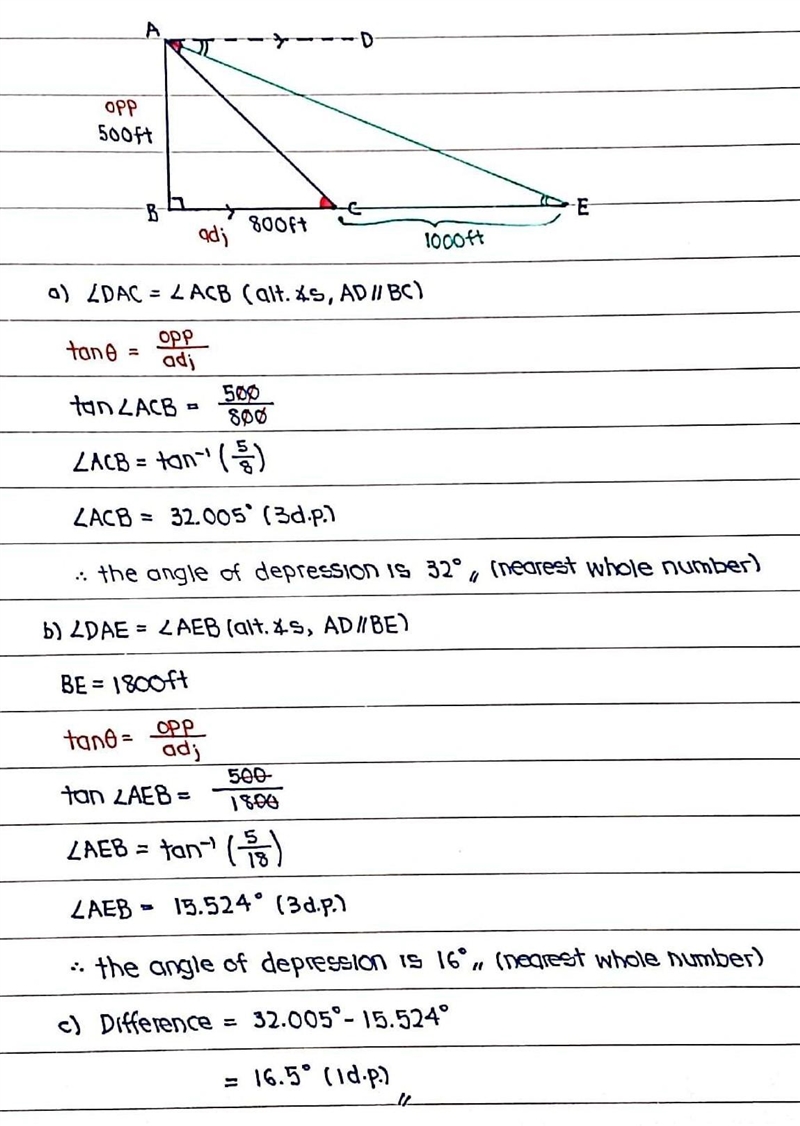 A
D
opp
500ft
B
C
E
adj
800ft
1000ft
a) ∠DAC = ∠ACB (alt. ∡s, AD // BC)
tanθ = opp/adj
tan∠ACB = 500/800
∠ACB = tan⁻¹ (5/8)
∠ACB = 32.005° (3d.p.)
∴ the angle of depression is 32° (nearest whole number)
b) ∠DAE = ∠AEB (alt. ∡s, AD // BE)
BE = 1800ft
tanθ = opp/adj
tan ∠AEB = 500/1800
∠AEB = tan⁻¹ (5/18)
∠AEB = 15.524° (3d.p.)
∴ the angle of depression is 16° (nearest whole number)
c) Difference = 32.005° - 15.524°
= 16.5° (1d.p.)